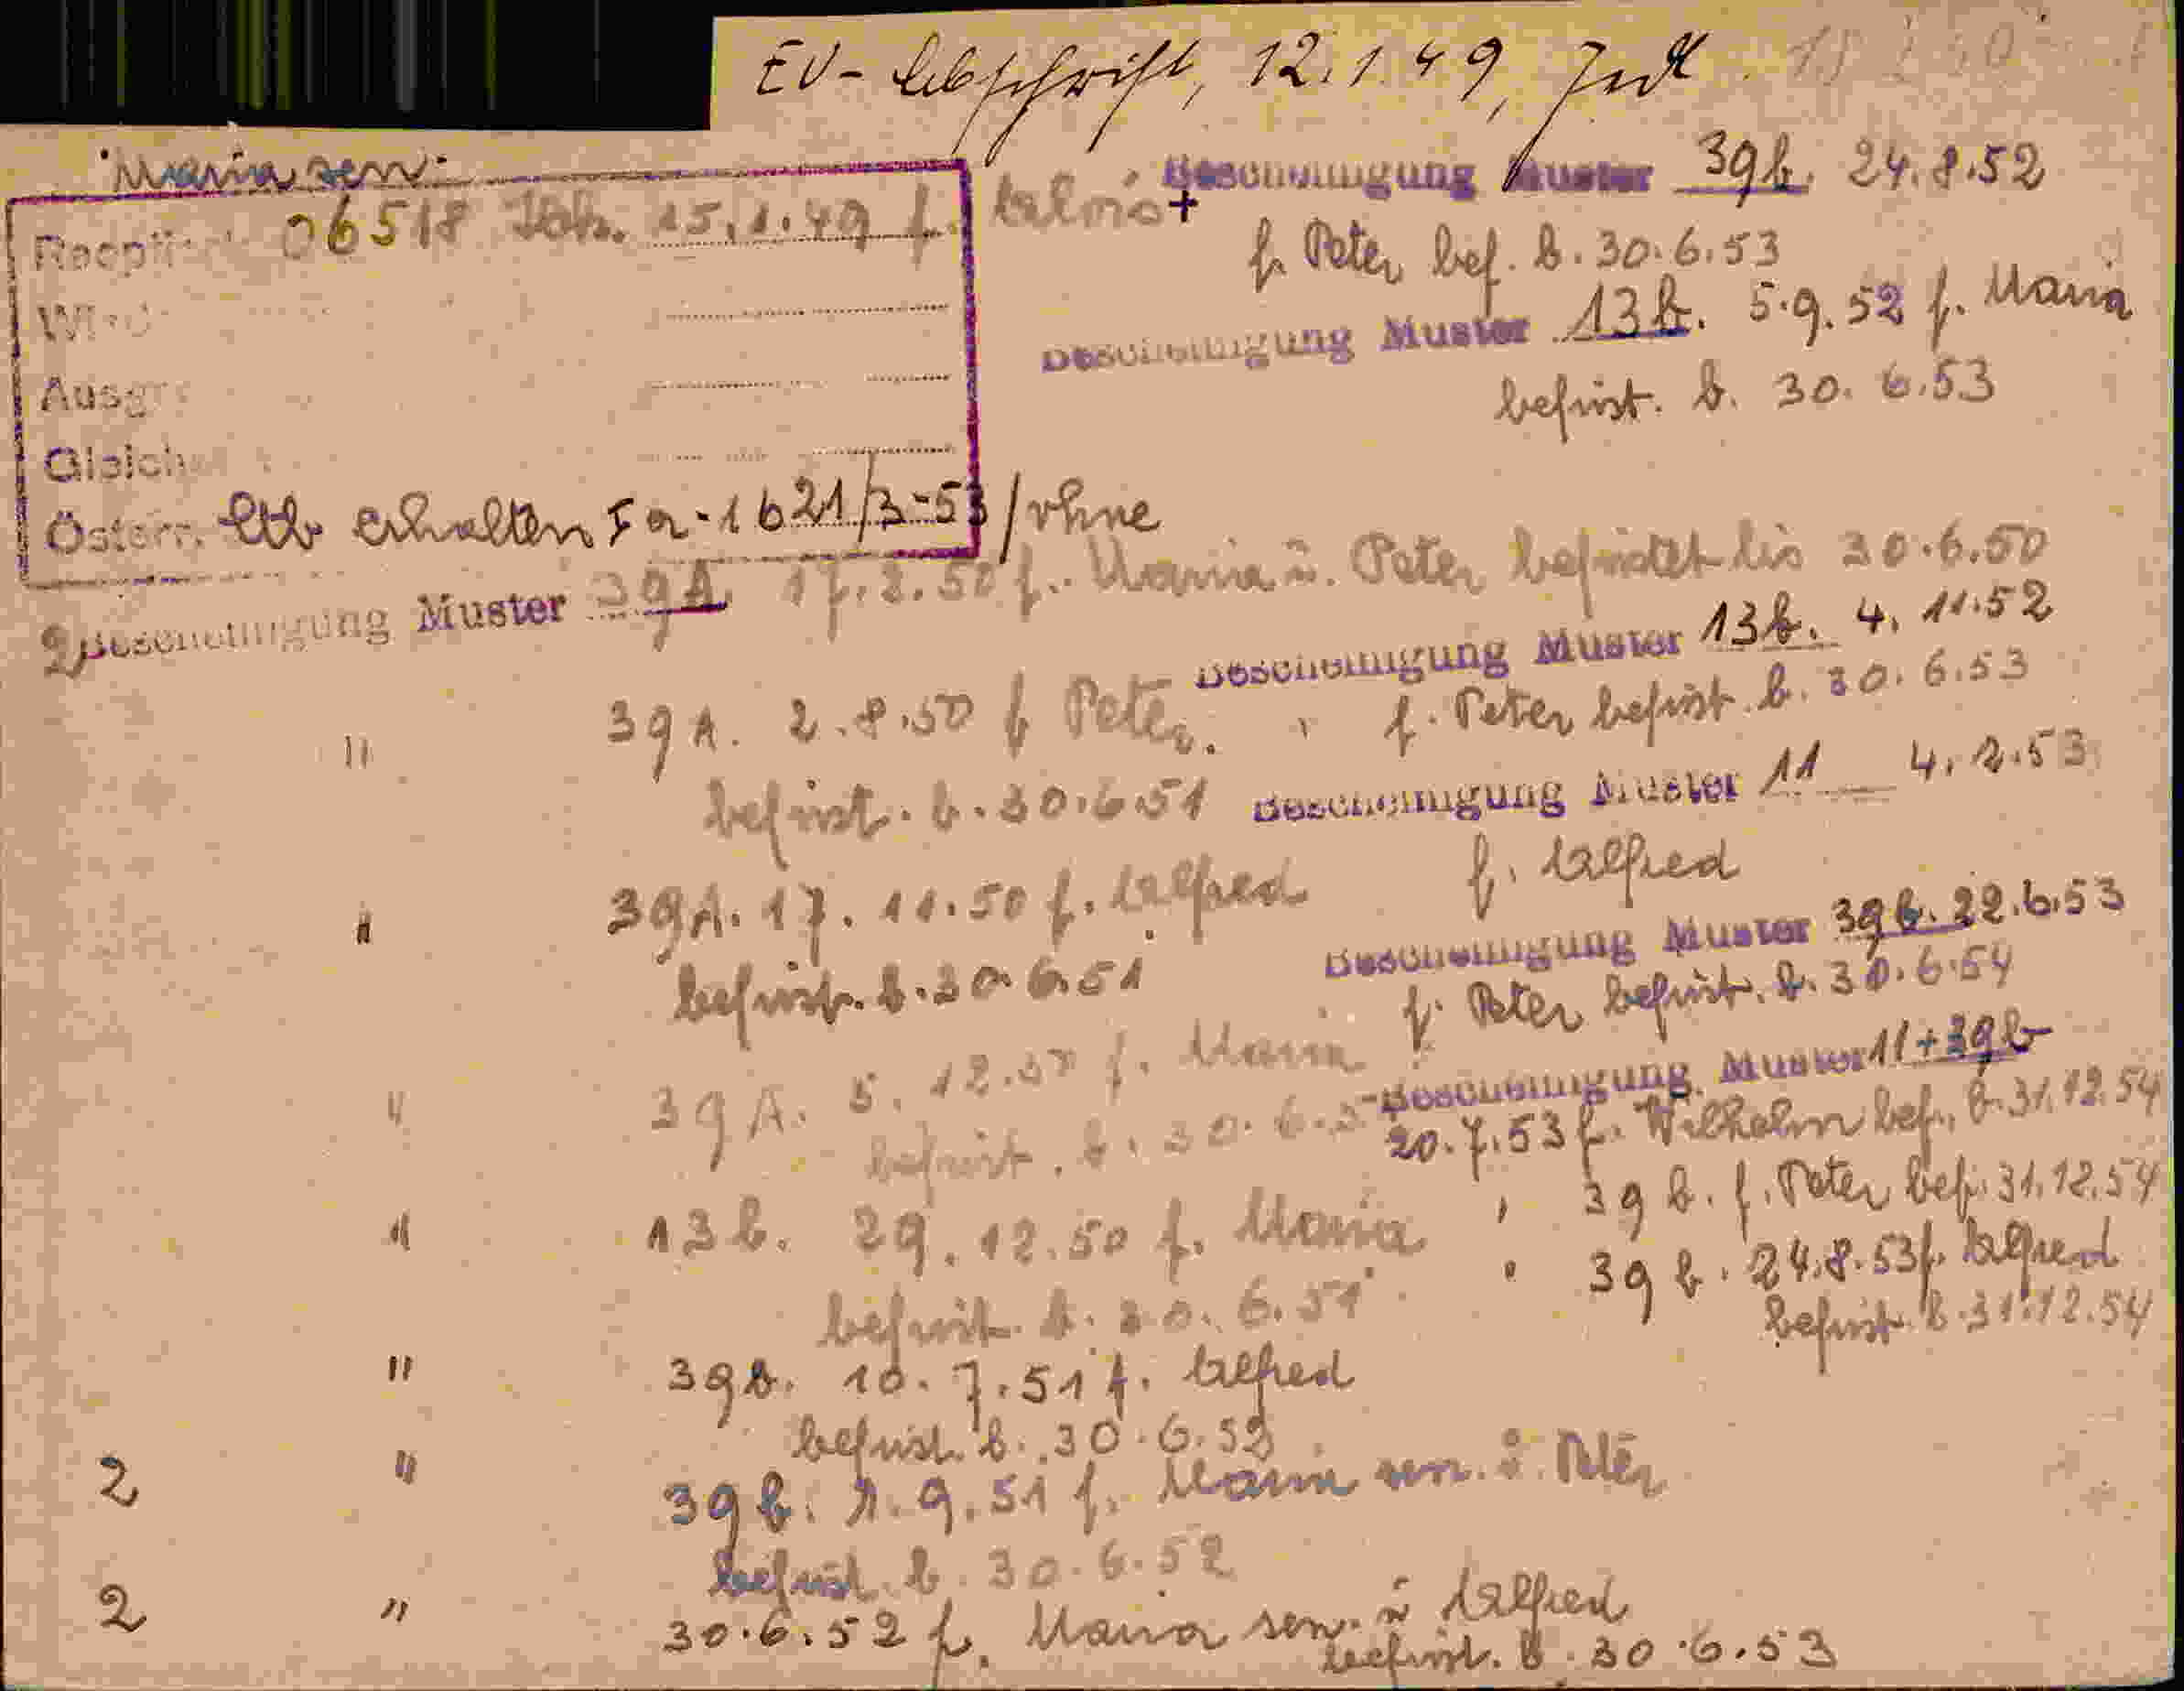 EV-Abschrift, 12.1.49,
Maria sen.
06518 15.1.49 f. Alois +
Gleich
Österr. Atb erhalten Fa-1621/3-53/ohne
2 Bescheinigung Muster 39A. 17.2.50 f. Maria u. Peter befristet bis 30.6.50
" 39A. 2.8.50 f Peter.
befrist. b. 30.6.51
" 39A. 17.11.50 f. Alfred
befrist. b. 30.6.51
" 39A. 5.12.50 f. Maria
befrist. b. 30.6.5
" 13b. 29.12.50 f. Maria
befrist. b. 30.6.51
" 39b. 10.7.51 f. Alfred
befrist. b. 30.6.52
2 " 39b. 1.9.51 f. Maria sen. u. Peter
befrist. b. 30.6.52
2 " 30.6.52 f. Maria sen. u Alfred
befrist. b. 30.6.53
Bescheinigung Muster 39b. 24.8.52
f. Peter bef. b. 30.6.53
Bescheinigung Muster 13b. 5.9.52 f. Maria
befrist. b. 30.6.53
Bescheinigung Muster 13b. 4.11.52
f. Peter befrist. b. 30.6.53
Bescheinigung Muster 11 4.2.53
f. Alfred
Bescheinigung Muster 39b. 22.6.53
f. Peter befrist. b. 30.6.54
Bescheinigung Muster 11+39b
20.7.53 f. Wilhelm bef. b. 31.12.54
" 39b. f. Peter bef. 31.12.54
" 39b. 24.8.53 f. Alfred
befrist. b. 31.12.54